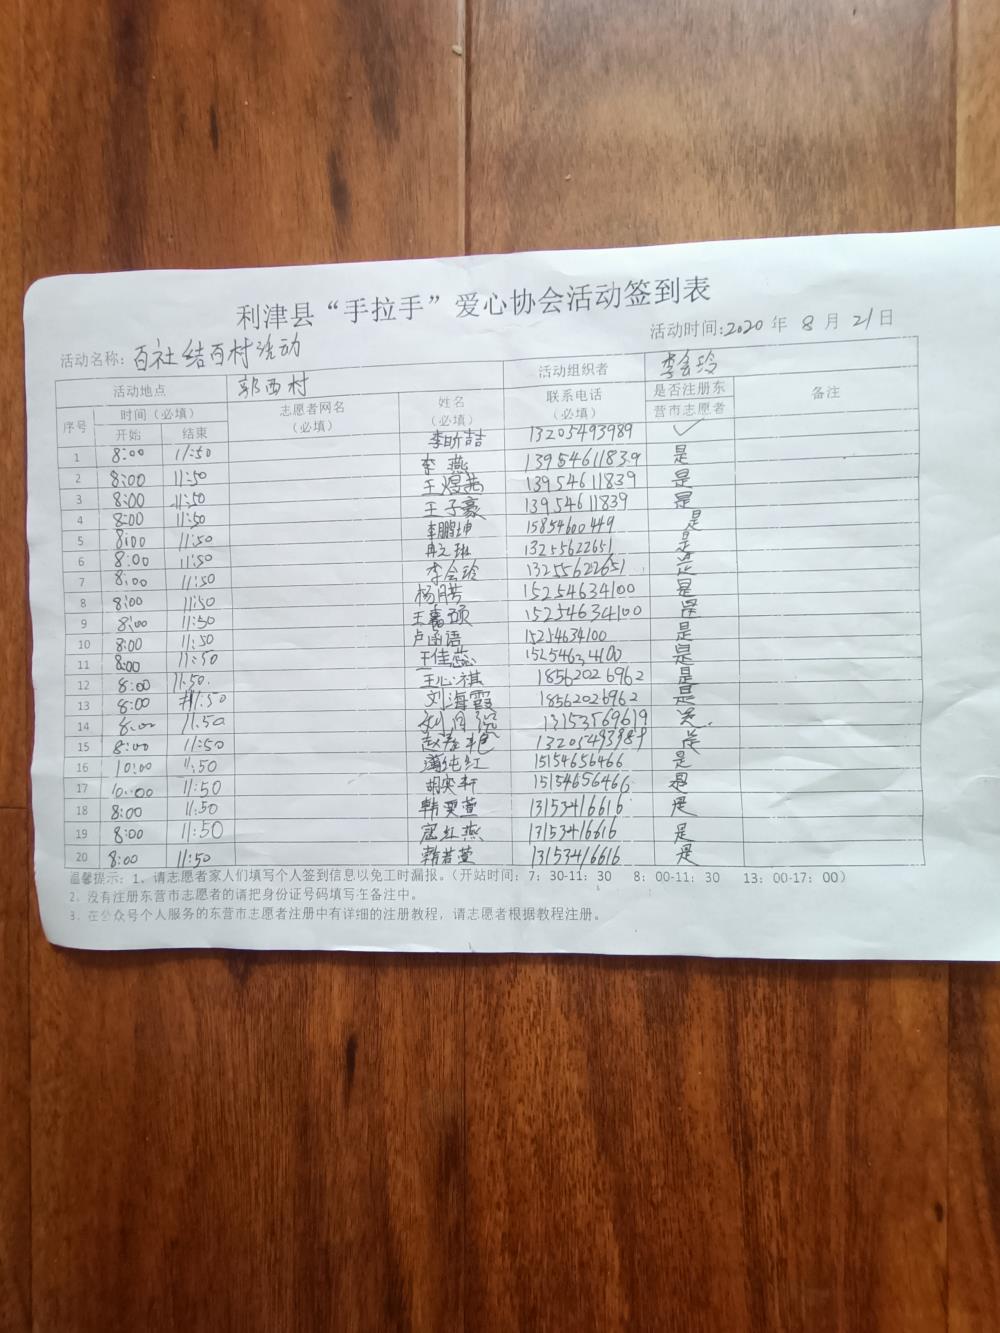 利津县“手拉手”爱心协会活动签到表
活动时间:2020 年 8 月 21 日
活动名称: 百社结百村活动
活动地点 郭西村 活动组织者 李会玲
序号 时间（必填） 志愿者网名（必填） 姓名（必填） 联系电话（必填） 是否注册东营市志愿者 备注
开始 结束
李昕喆 13205493989 ✓
1 8:00 11:50 李燕 13954611839 是
2 8:00 11:50 王煜茜 13954611839 是
3 8:00 11:50 王子豪 13954611839 是
4 8:00 11:50 李鹏坤 15854600449 是
5 8:00 11:50 13255622651 是
6 8:00 11:50 李会玲 13255622651 是
7 8:00 11:50 杨 15254634100 是
8 8:00 11:50 王 颐 15254634100 是
9 8:00 11:50 卢函语 15254634100 是
10 8:00 11:50 王佳蕊 15254634100 是
11 8:00 11:50 王心祺 18562026962 是
12 8:00 11:50. 刘海霞 18562026962 是
13 8:00 11:50 刘 13153569619 是
14 8:00 11:50 赵 艳 13205493989 是
15 8:00 11:50 薄纯红 15154656466 是
16 10:00 11:50 胡奕轩 15154656466 是
17 10:00 11:50 韩 萱 13153416616 是
18 8:00 11:50 寇红燕 13153416616 是
19 8:00 11:50 韩若萱 13153416616 是
20 8:00 11:50
温馨提示: 1、请志愿者家人们填写个人签到信息以免工时漏报。（开站时间: 7: 30-11: 30 8: 00-11: 30 13: 00-17: 00）
2、没有注册东营市志愿者的请把身份证号码填写在备注中。
3、在公众号个人服务的东营市志愿者注册中有详细的注册教程，请志愿者根据教程注册。